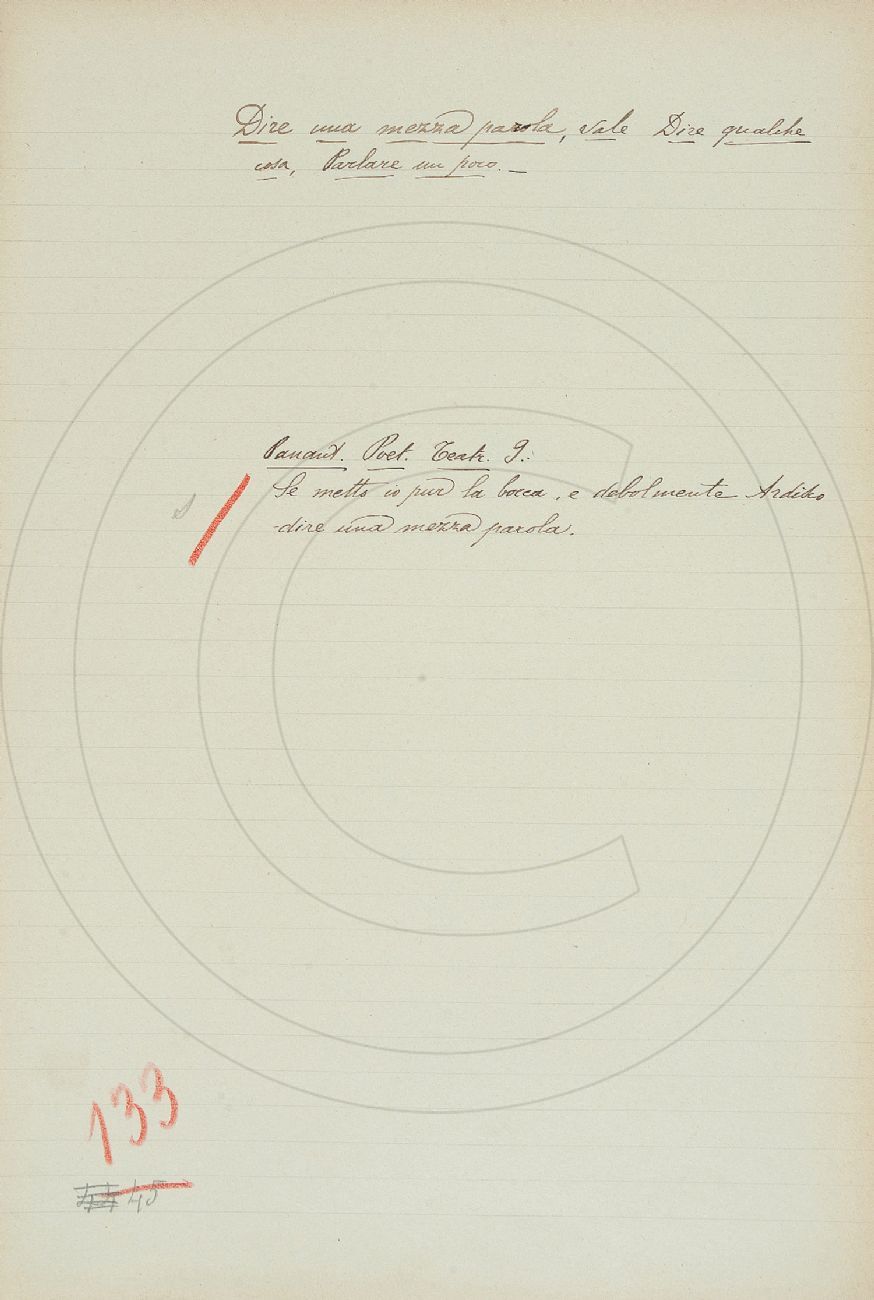 Dire una mezza parola, vale Dire qualche
cosa, Parlare un poco. _
Panant. Poet. Teatr. 9.:
Se metto io pur la bocca, e debolmente Ardisco
dire una mezza parola.
s
133
45